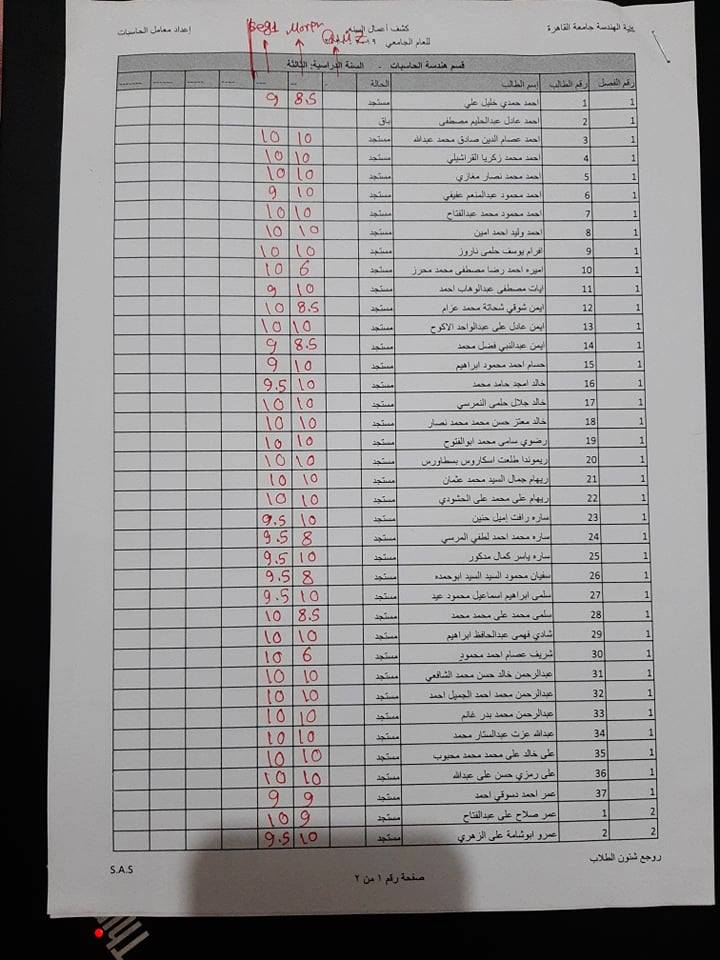 كلية الهندسة جامعة القاهرة
كشف أعمال السنه
إعداد معامل الحاسبات
للعام الجامعي ٢٠١٩
Seg1 Morph Quiz
قسم هندسة الحاسبات - السنة الدراسية: الثالثة
رقم الفصل رقم الطالب إسم الطالب الحالة
1 1 احمد حمدي خليل علي مستجد 8.5 9
1 2 احمد عادل عبدالحليم مصطفى باق
1 3 احمد عصام الدين صادق محمد عبدالله مستجد 10 10
1 4 احمد محمد زكريا القراشيلي مستجد 10 10
1 5 احمد محمد نصار مغازي مستجد 10 10
1 6 احمد محمود عبدالمنعم عفيفي مستجد 10 9
1 7 احمد محمود محمد عبدالفتاح مستجد 10 10
1 8 احمد وليد احمد امين مستجد 10 10
1 9 افرام يوسف حلمى ناروز مستجد 10 10
1 10 اميره احمد رضا مصطفى محمد محرز مستجد 6 10
1 11 ايات مصطفى عبدالوهاب احمد مستجد 10 9
1 12 ايمن شوقي شحاتة محمد عزام مستجد 8.5 10
1 13 ايمن عادل على عبدالواحد الاكوح مستجد 10 10
1 14 ايمن عبدالنبي فضل محمد مستجد 8.5 9
1 15 حسام احمد محمود ابراهيم مستجد 10 9
1 16 خالد امجد حامد محمد مستجد 10 9.5
1 17 خالد جلال حلمى النمرسي مستجد 10 10
1 18 خالد معتز حسن محمد محمد نصار مستجد 10 10
1 19 رضوي سامى محمد ابوالفتوح مستجد 10 10
1 20 ريموندا طلعت اسكاروس بسطاورس مستجد 10 10
1 21 ريهام جمال السيد محمد عثمان مستجد 10 10
1 22 ريهام على محمد على الحشودي مستجد 10 10
1 23 ساره رافت إميل حنين مستجد 10 9.5
1 24 ساره محمد احمد لطفي المرسي مستجد 8 9.5
1 25 ساره ياسر كمال مدكور مستجد 10 9.5
1 26 سفيان محمود السيد السيد ابوحمده مستجد 8 9.5
1 27 سلمى ابراهيم اسماعيل محمود عيد مستجد 10 9.5
1 28 سلمى محمد على محمد محمد مستجد 8.5 10
1 29 شادي فهمى عبدالحافظ ابراهيم مستجد 10 10
1 30 شريف عصام احمد محمود مستجد 6 10
1 31 عبدالرحمن خالد حسن محمد الشافعي مستجد 10 10
1 32 عبدالرحمن محمد احمد الجميل احمد مستجد 10 10
1 33 عبدالرحمن محمد بدر غانم مستجد 10 10
1 34 عبدالله عزت عبدالستار محمد مستجد 10 10
1 35 على خالد على محمد محمد محبوب مستجد 10 10
1 36 على رمزي حسن على عبدالله مستجد 10 10
1 37 عمر احمد دسوقي احمد مستجد 9 9
2 1 عمر صلاح على عبدالفتاح مستجد 9 10
2 2 عمرو ابوشامة على الزهري مستجد 10 9.5
روجع شئون الطلاب
صفحة رقم ١ من ٢
S.A.S